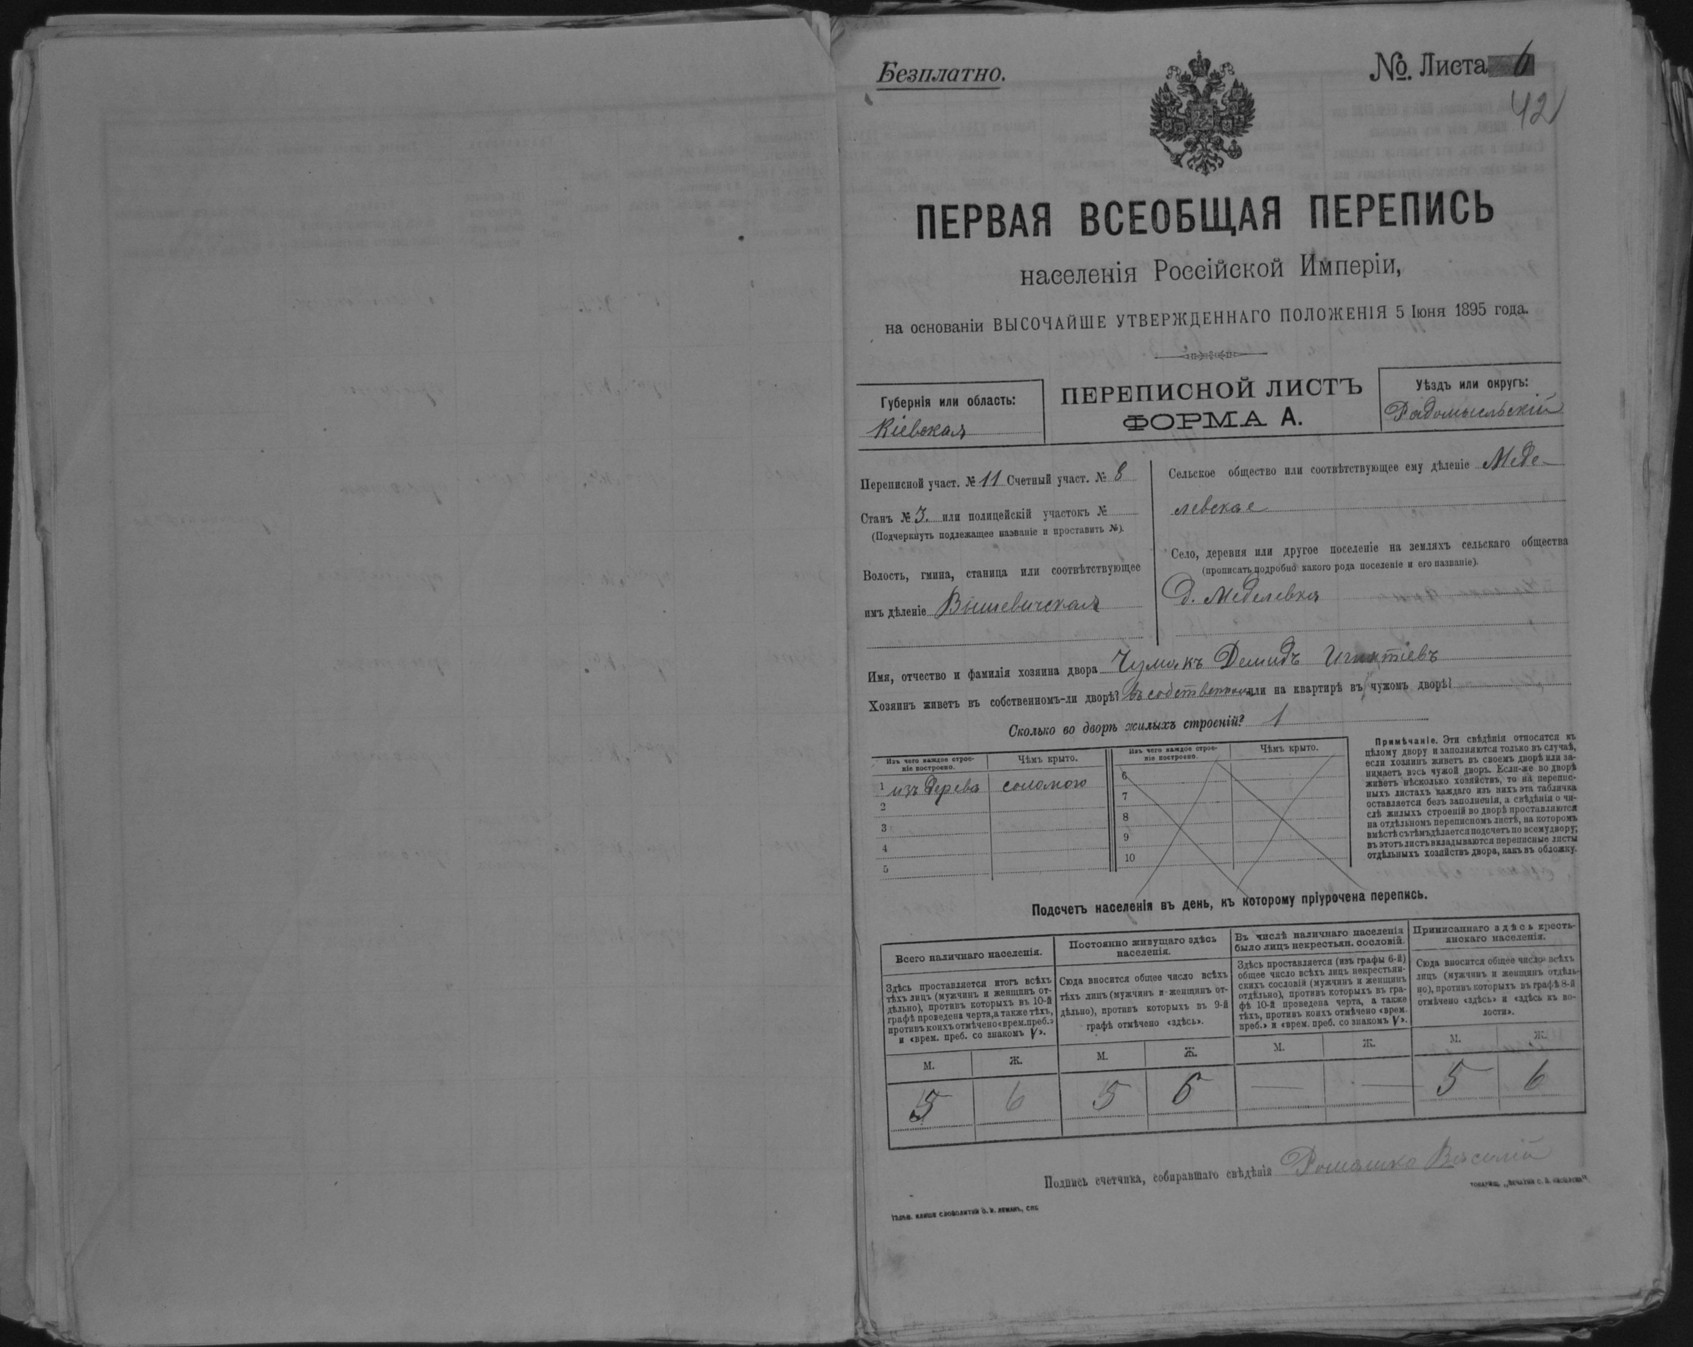 Безплатно.
№. Листа 6
42
ПЕРВАЯ ВСЕОБЩАЯ ПЕРЕПИСЬ
населенія Россійской Имперіи,
на основаніи ВЫСОЧАЙШЕ УТВЕРЖДЕННАГО ПОЛОЖЕНІЯ 5 Іюня 1895 года.
Губернія или область:
Кіевская
ПЕРЕПИСНОЙ ЛИСТЪ
ФОРМА А.
Уѣздъ или округъ:
Радомысльскій
Переписной участ. № 11 Счетный участ. № 8
Станъ № 3. или полицейскій участокъ №
(Подчеркнуть подлежащее названіе и проставить №).
Волость, гмина, станица или соотвѣтствующее
имъ дѣленіе Вышевичская
Сельское общество или соотвѣтствующее ему дѣленіе Меде-
левское
Село, деревня или другое поселеніе на земляхъ сельскаго общества
(прописать подробно какого рода поселеніе и его названіе).
Д. Меделевка
Имя, отчество и фамилія хозяина двора Чумакъ Демидъ
Хозяинъ живетъ въ собственномъ-ли дворѣ? въ собственном или на квартирѣ въ чужомъ дворѣ?
Сколько во дворѣ жилыхъ строеній? 1
Изъ чего каждое строе-
ніе построено.
Чѣмъ крыто.
1 изъ Дерева соломою
2
3
4
5
Изъ чего каждое строе-
ніе построено.
Чѣмъ крыто.
6
7
8
9
10
Примѣчаніе. Эти свѣдѣнія относятся къ
цѣлому двору и заполняются только въ случаѣ,
если хозяинъ живетъ въ своемъ дворѣ или за-
нимаетъ весь чужой дворъ. Если-же во дворѣ
живетъ нѣсколько хозяйствъ, то на перепис-
ныхъ листахъ каждаго изъ нихъ эта табличка
оставляется безъ заполненія, а свѣдѣнія о чи-
слѣ жилыхъ строеній во дворѣ проставляются
на отдѣльномъ переписномъ листѣ, на которомъ
вмѣстѣ съ тѣмъ дѣлается подсчетъ по всему двору;
въ этотъ листъ вкладываются переписные листы
отдѣльныхъ хозяйствъ двора, какъ въ обложку.
Подсчетъ населенія въ день, къ которому пріурочена перепись.
Всего наличнаго населенія.
Здѣсь проставляется итогъ всѣхъ
тѣхъ лицъ (мужчинъ и женщинъ от-
дѣльно), противъ которыхъ въ 10-й
графѣ проведена черта, а также тѣхъ,
противъ коихъ отмѣчено «врем. преб.»
и «врем. преб. со знакомъ V».
М. Ж.
5 6
Постоянно живущаго здѣсь
населенія.
Сюда вносится общее число всѣхъ
тѣхъ лицъ (мужчинъ и женщинъ от-
дѣльно), противъ которыхъ въ 9-й
графѣ отмѣчено «здѣсь».
М. Ж.
5 6
Въ числѣ наличнаго населенія
было лицъ некрестьян. сословій.
Здѣсь проставляется (изъ графы 6-й)
общее число всѣхъ лицъ некрестьян-
скихъ сословій (мужчинъ и женщинъ
отдѣльно), противъ которыхъ въ гра-
фѣ 10-й проведена черта, а также
тѣхъ, противъ коихъ отмѣчено «врем.
преб.» и «врем. преб. со знакомъ V».
М. Ж.
— —
Приписаннаго здѣсь кресть-
янскаго населенія.
Сюда вносится общее число всѣхъ
лицъ (мужчинъ и женщинъ отдѣль-
но), противъ которыхъ въ графѣ 8-й
отмѣчено «здѣсь» и «здѣсь въ во-
лости».
М. Ж.
5 6
Подпись счетчика, собиравшаго свѣдѣнія Ромашко Василій